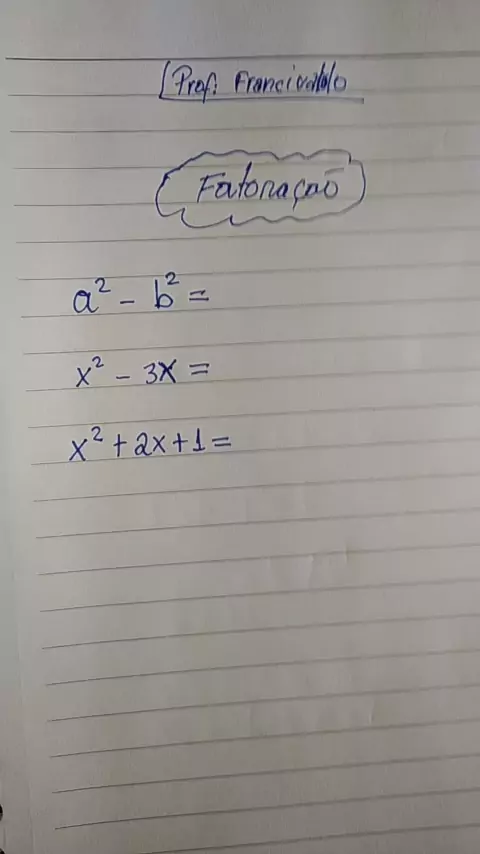 Prof: Francivaldo
Fatoração
a² - b² =
x² - 3x =
x² + 2x + 1 =